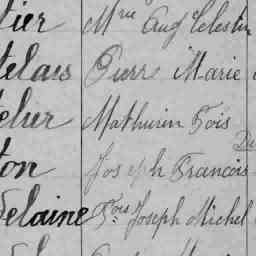 tier Mie Aug Celestin
telais Pierre Marie
telier Mathurin Fois
ton Joseph Francois
Delaine Fois Joseph Michel